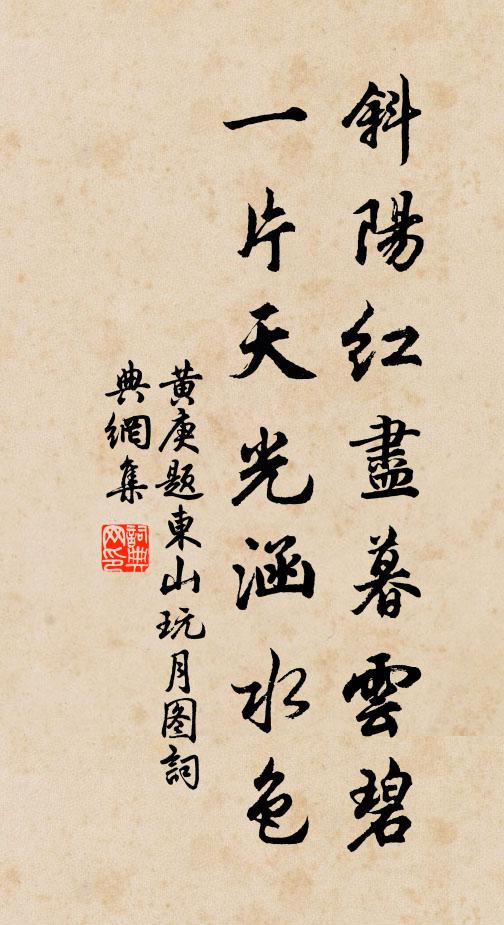 斜陽紅盡暮雲碧
一片天光涵水色
黄庚題東山玩月图詞
典網集
詞典
网印